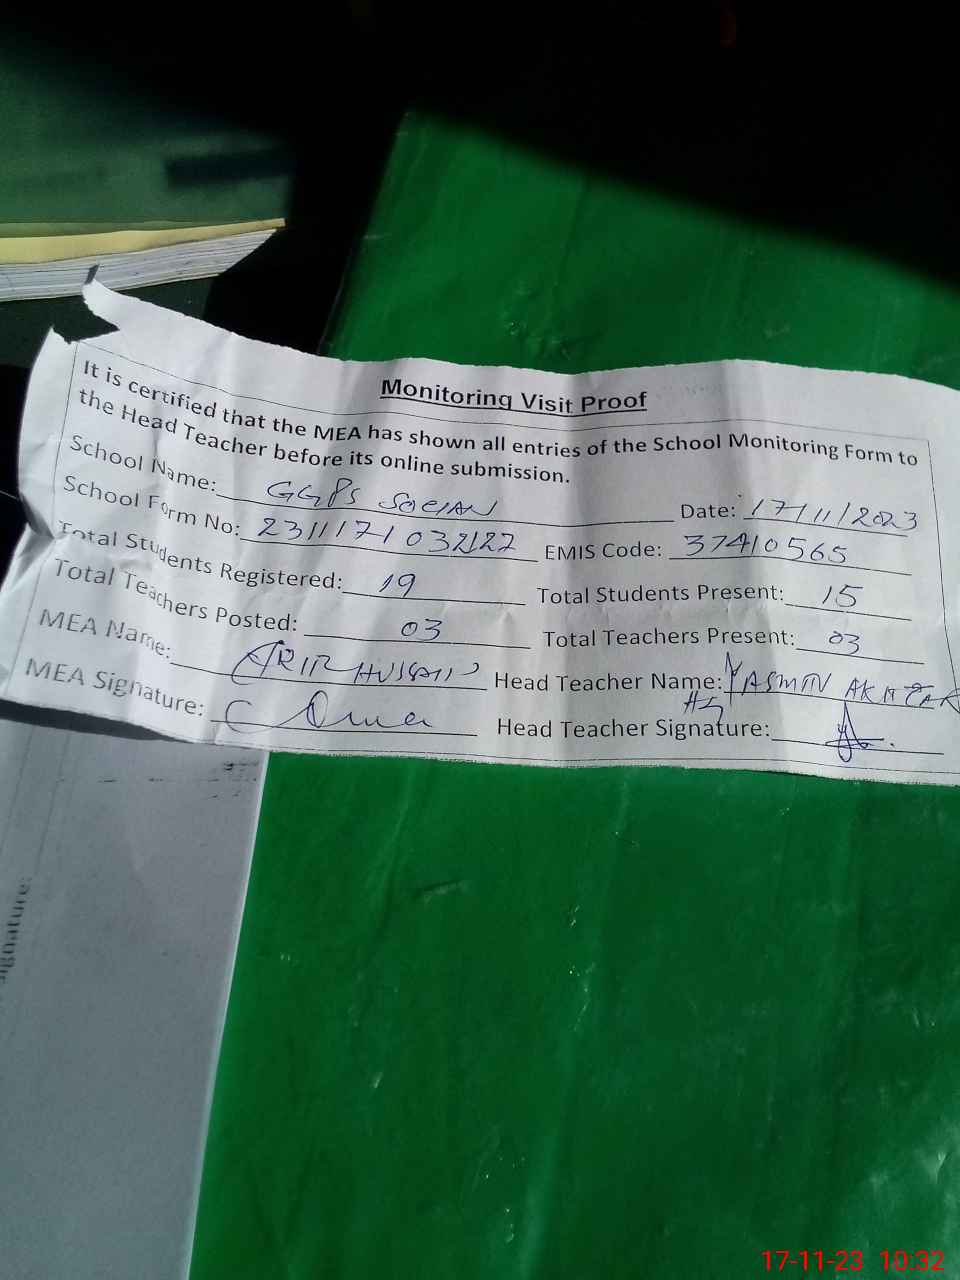 Monitoring Visit Proof
It is certified that the MEA has shown all entries of the School Monitoring Form to
the Head Teacher before its online submission.
School Name: GGPS SOCIAN Date: 17/11/2023
School Form No: EMIS Code: 37410565
Total Students Registered: 19 Total Students Present: 15
Total Teachers Posted: 03 Total Teachers Present: 03
MEA Name: HUSSAIN Head Teacher Name: YASMIN AKHTAR
MEA Signature: Head Teacher Signature:
17-11-23 10:32